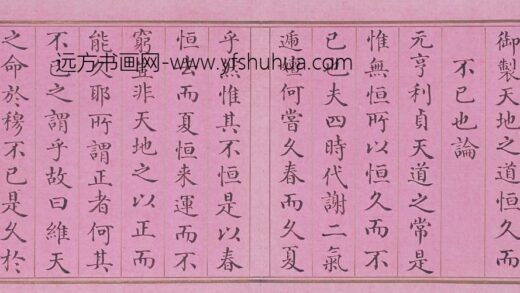 御製天地之道恒久而
不已也論
元亨利貞天道之常是
惟無恒所以恒久而不
已也夫四時代謝二氣
遞嬗何嘗久春而久夏
乎惟其不恒是以春
恒去而夏恒来運而不
窮豈非天地之以正而
能久耶所謂正者何其
不已之謂乎故曰維天
之命於穆不已是久於
远方书画网-www.yfshuhua.com